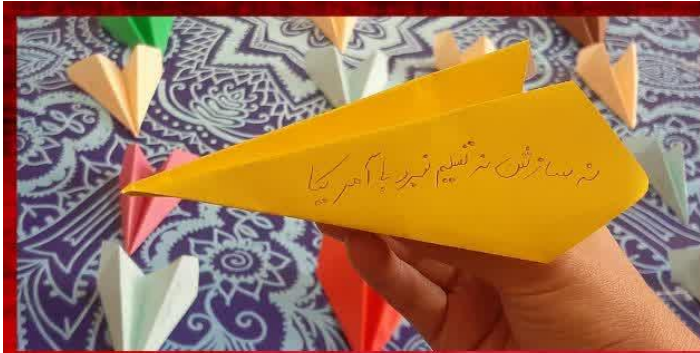 نه سازش نه تسلیم نبرد با آمریکا